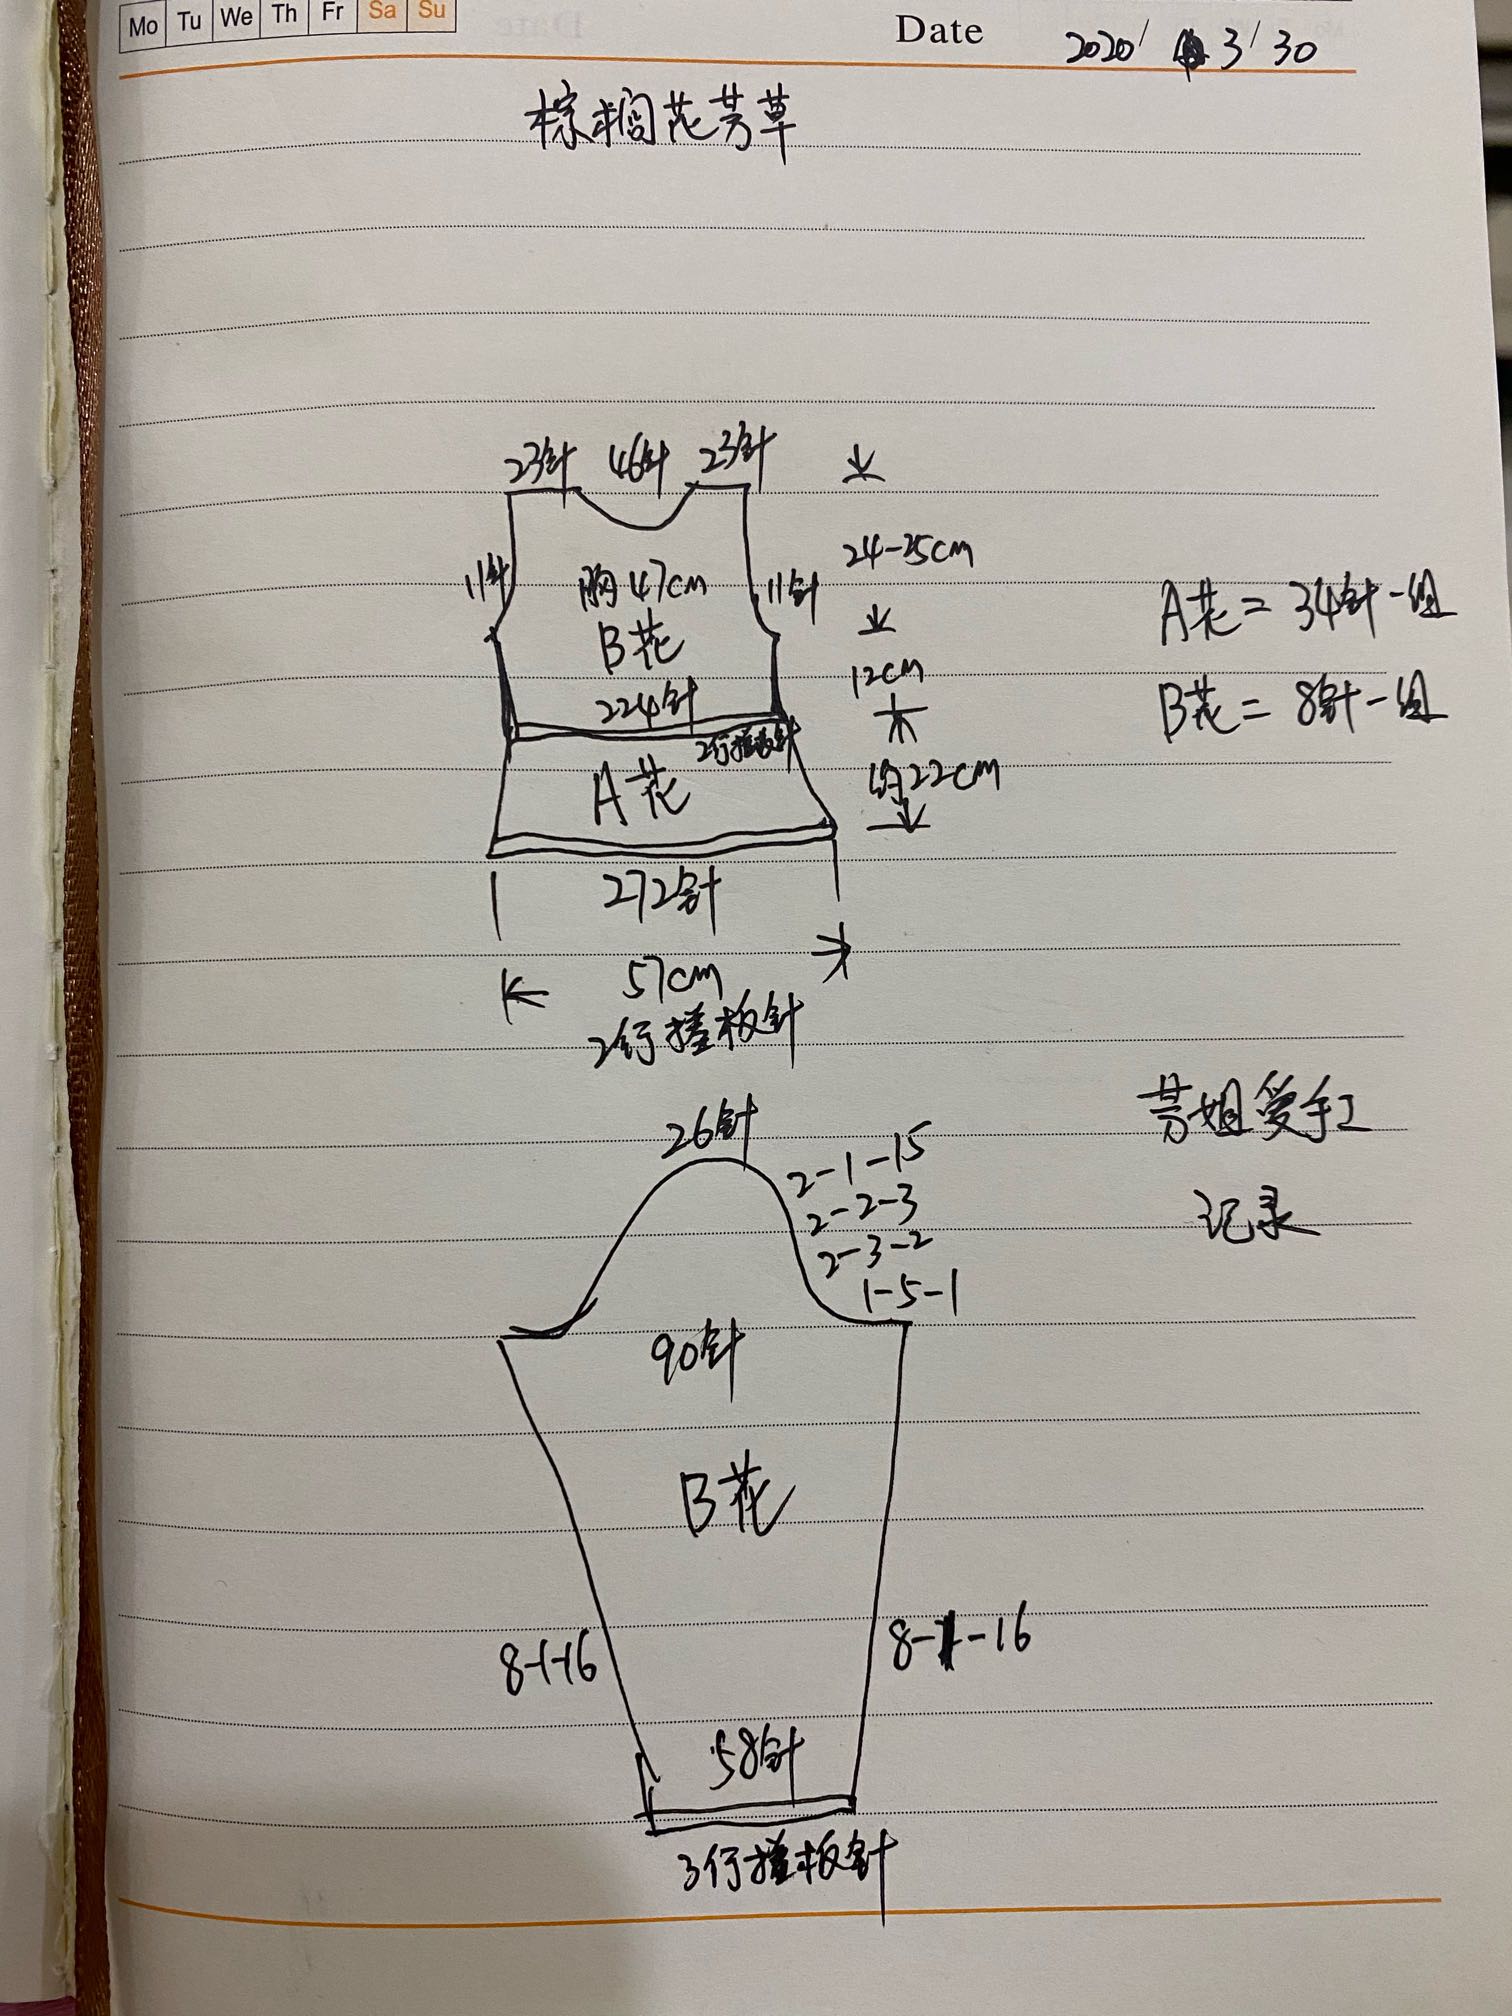 Mo Tu We Th Fr Sa Su
Date 2020/ 3/30
棕榈花芳草
23针 46针 23针
24-25cm
11针 胸47cm 11针
B花
A花=34针一组
12cm
224针
B花=8针一组
2行搓板针
约22cm
A花
272针
57cm
2行搓板针
芳姐爱手工
记录
26针
2-1-15
2-2-3
2-3-2
1-5-1
90针
B花
8-1-16 8-1-16
58针
3行搓板针